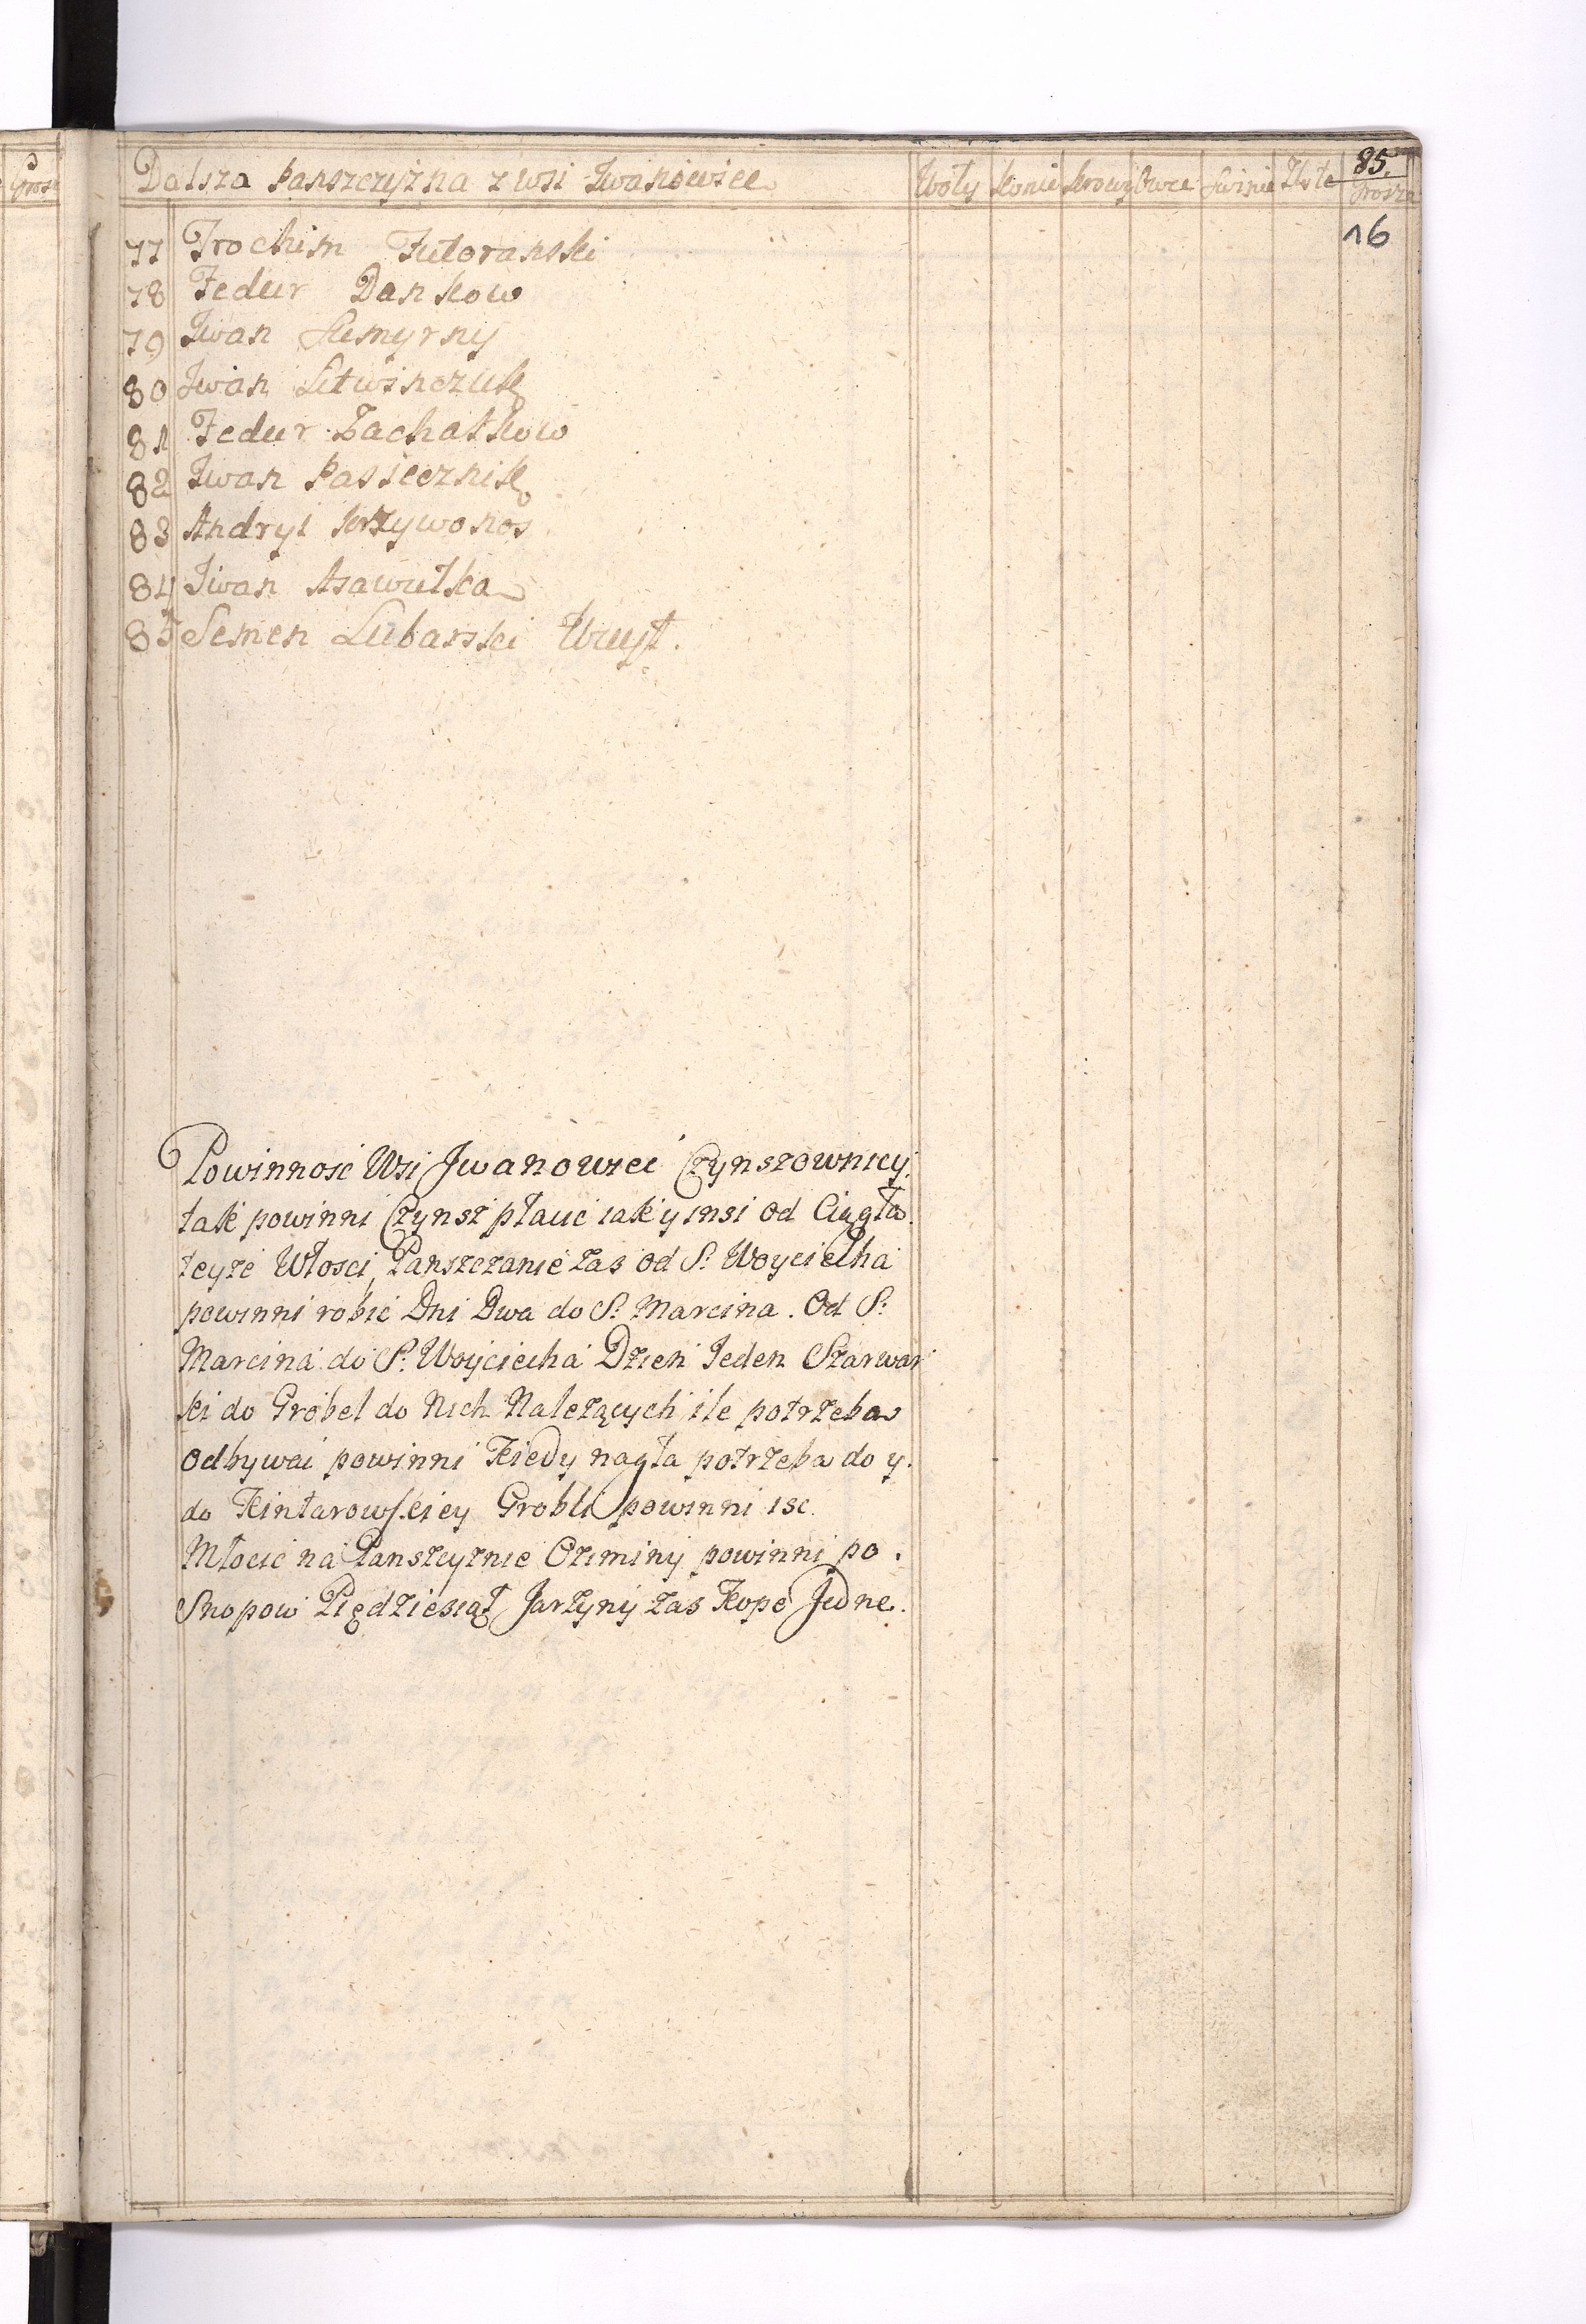 85.
Dalsza Panszczyzna z wsi Iwanowiec Woły Konie Krowy Owce Swinie Złote Grosze
16
77 Trochim Futoranski
78 Fedur Dankow
79 Iwan Sumyrny
80 Iwan Litwinczuk
81 Fedur Zachatkow
82 Iwan Pasiecznik
83 Andryi Krzywonos
84 Iwan Asawułka
85 Semen Lubarski
Powinnosc Wsi Jwanowiec Czynszownicy
tak powinni Czynsz płacic iak y insi od Ciągła
teyze Włosci, Panszczanie zas od S: Woyciecha
powinni robic Dni Dwa do S: Marcina. Od S:
Marcina do S: Woyciecha Dzien Jeden Szarwar
ki do Grobel do Nich Nalezących ile potrzeba
odbywac powinni Kiedy nagła potrzeba do y.
do Kintarowskiey Grobli powinni isc.
Młocic na Panszczyznie Oziminy powinni po.
Snopow Piędziesiąt Jarzyny zas Kope Jedne.